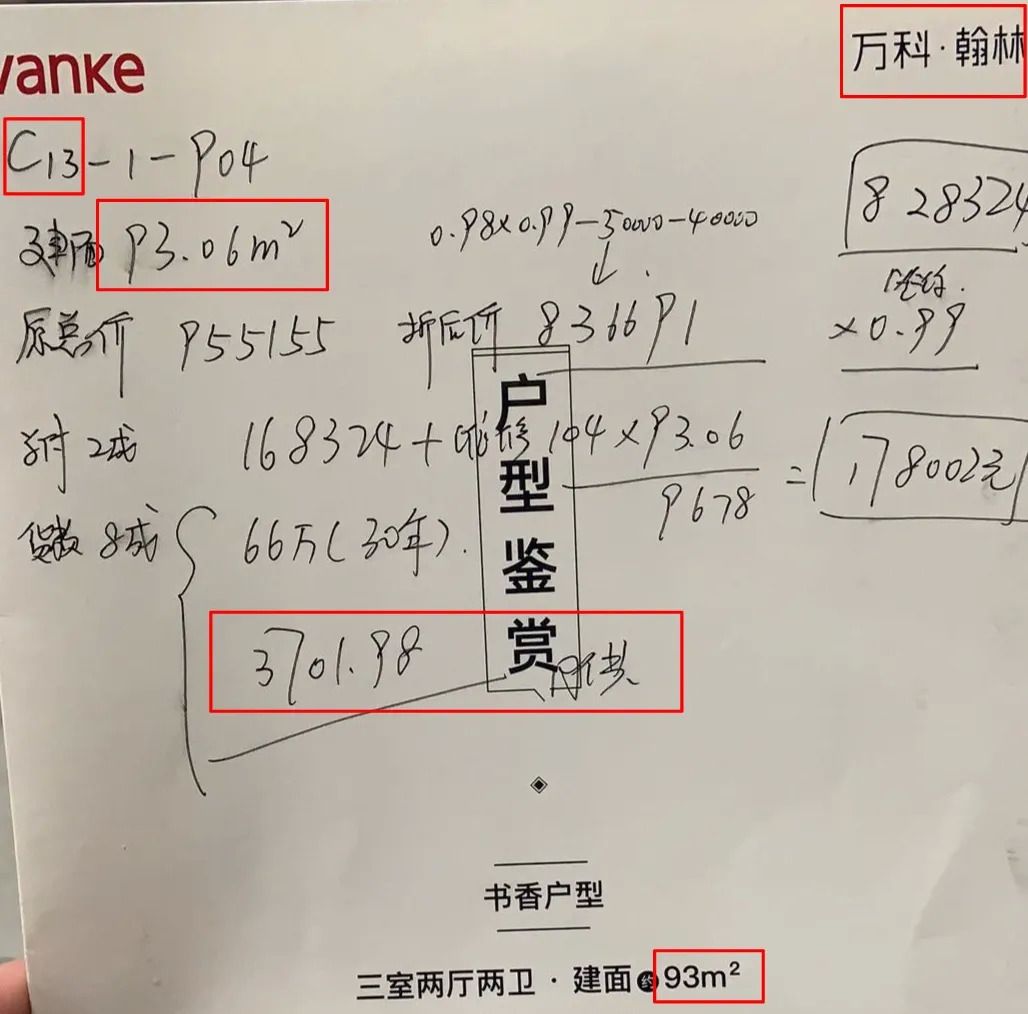 vanke
万科·翰林
C13-1-904
建面 93.06m²
0.98×0.99-50000-40000
828324
原总价 955155 折后价 836691
×0.99
首付 2成 168324+维修 104×93.06
9678
=178002元
贷款 8成 66万(30年).
3701.98 月供
户型鉴赏
书香户型
三室两厅两卫·建面约93m²